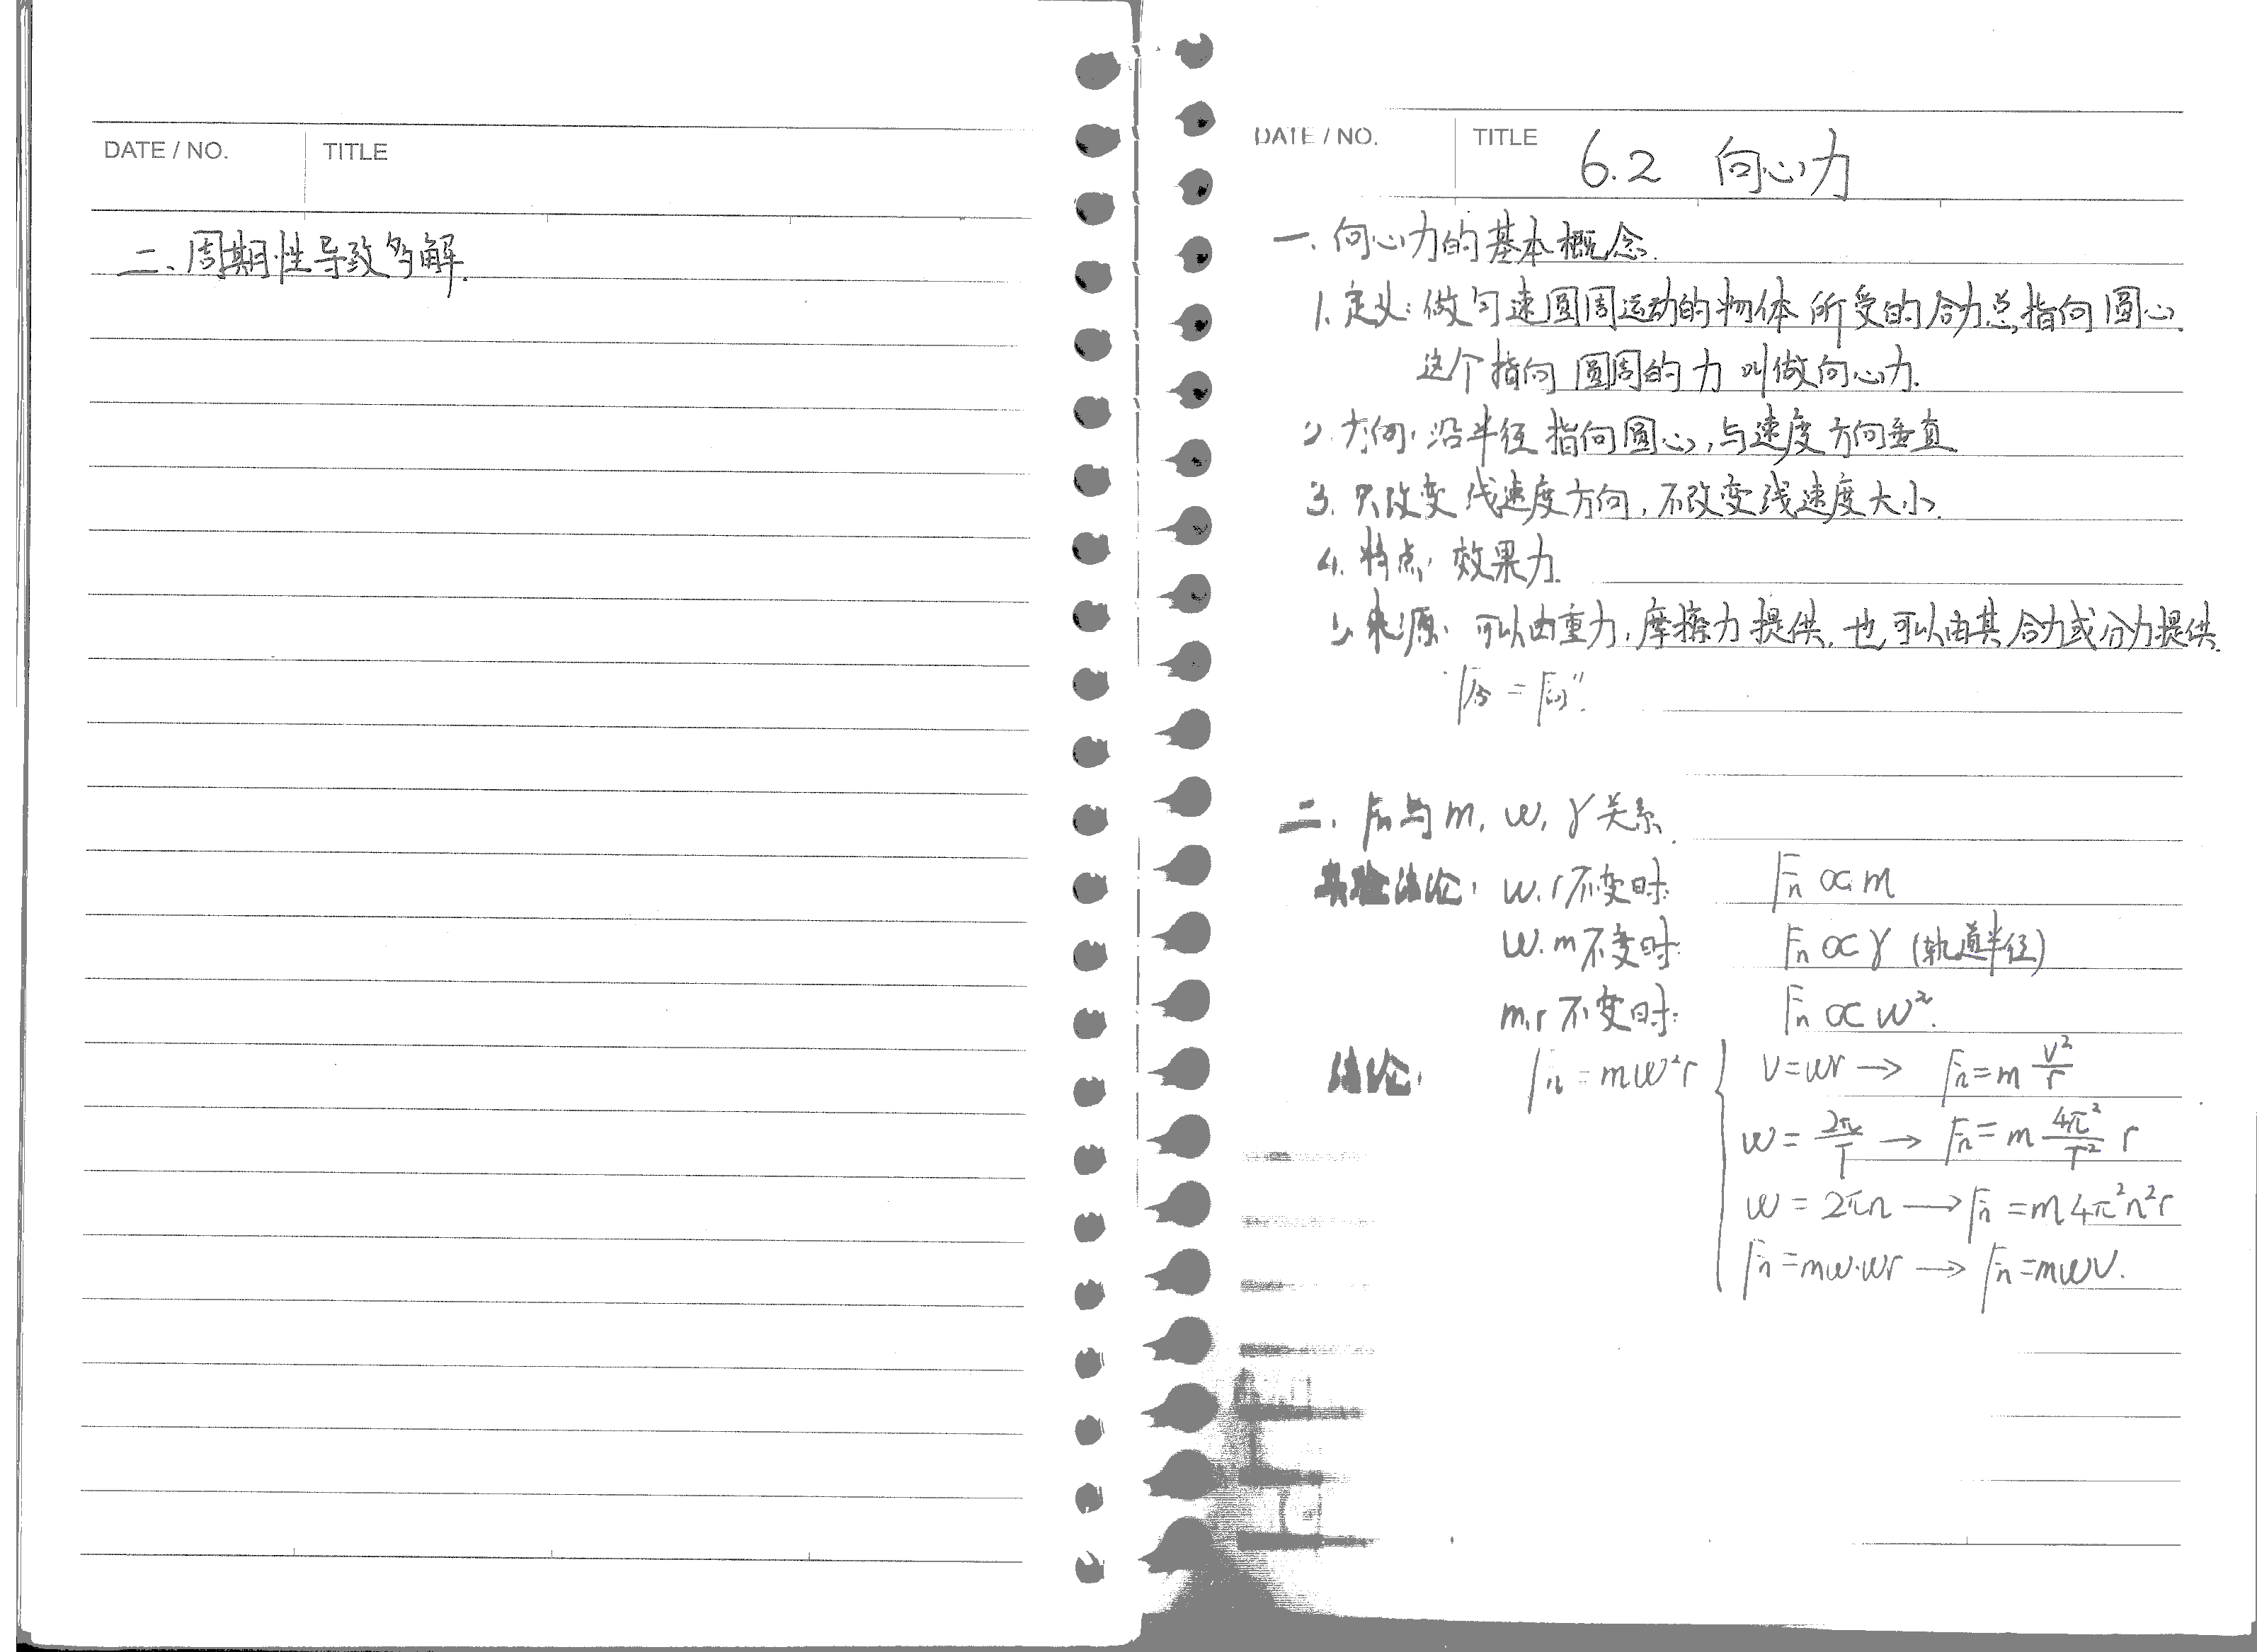 DATE / NO. TITLE
二、周期性导致多解.
DATE / NO. TITLE 6.2 向心力
一、向心力的基本概念.
1. 定义：做匀速圆周运动的物体所受的合力总指向圆心.
这个指向圆周的力叫做向心力.
2. 方向：沿半径指向圆心，与速度方向垂直
3. 只改变线速度方向，不改变线速度大小.
4. 特点：效果力.
5. 来源：可以由重力，摩擦力提供，也可以由其合力或分力提供.
"F合 = F向".
二、Fn与m, w, r关系.
实验结论： w. r不变时: Fn ∝ m
w. m不变时: Fn ∝ r (轨道半径)
m, r不变时: Fn ∝ w².
结论： Fn = mw²r { v=wr → Fn=m v²/r
w = 2π/T → Fn = m 4π²/T² r
w = 2πn → Fn = m4π²n²r
Fn = mw·wr → Fn = mwv.